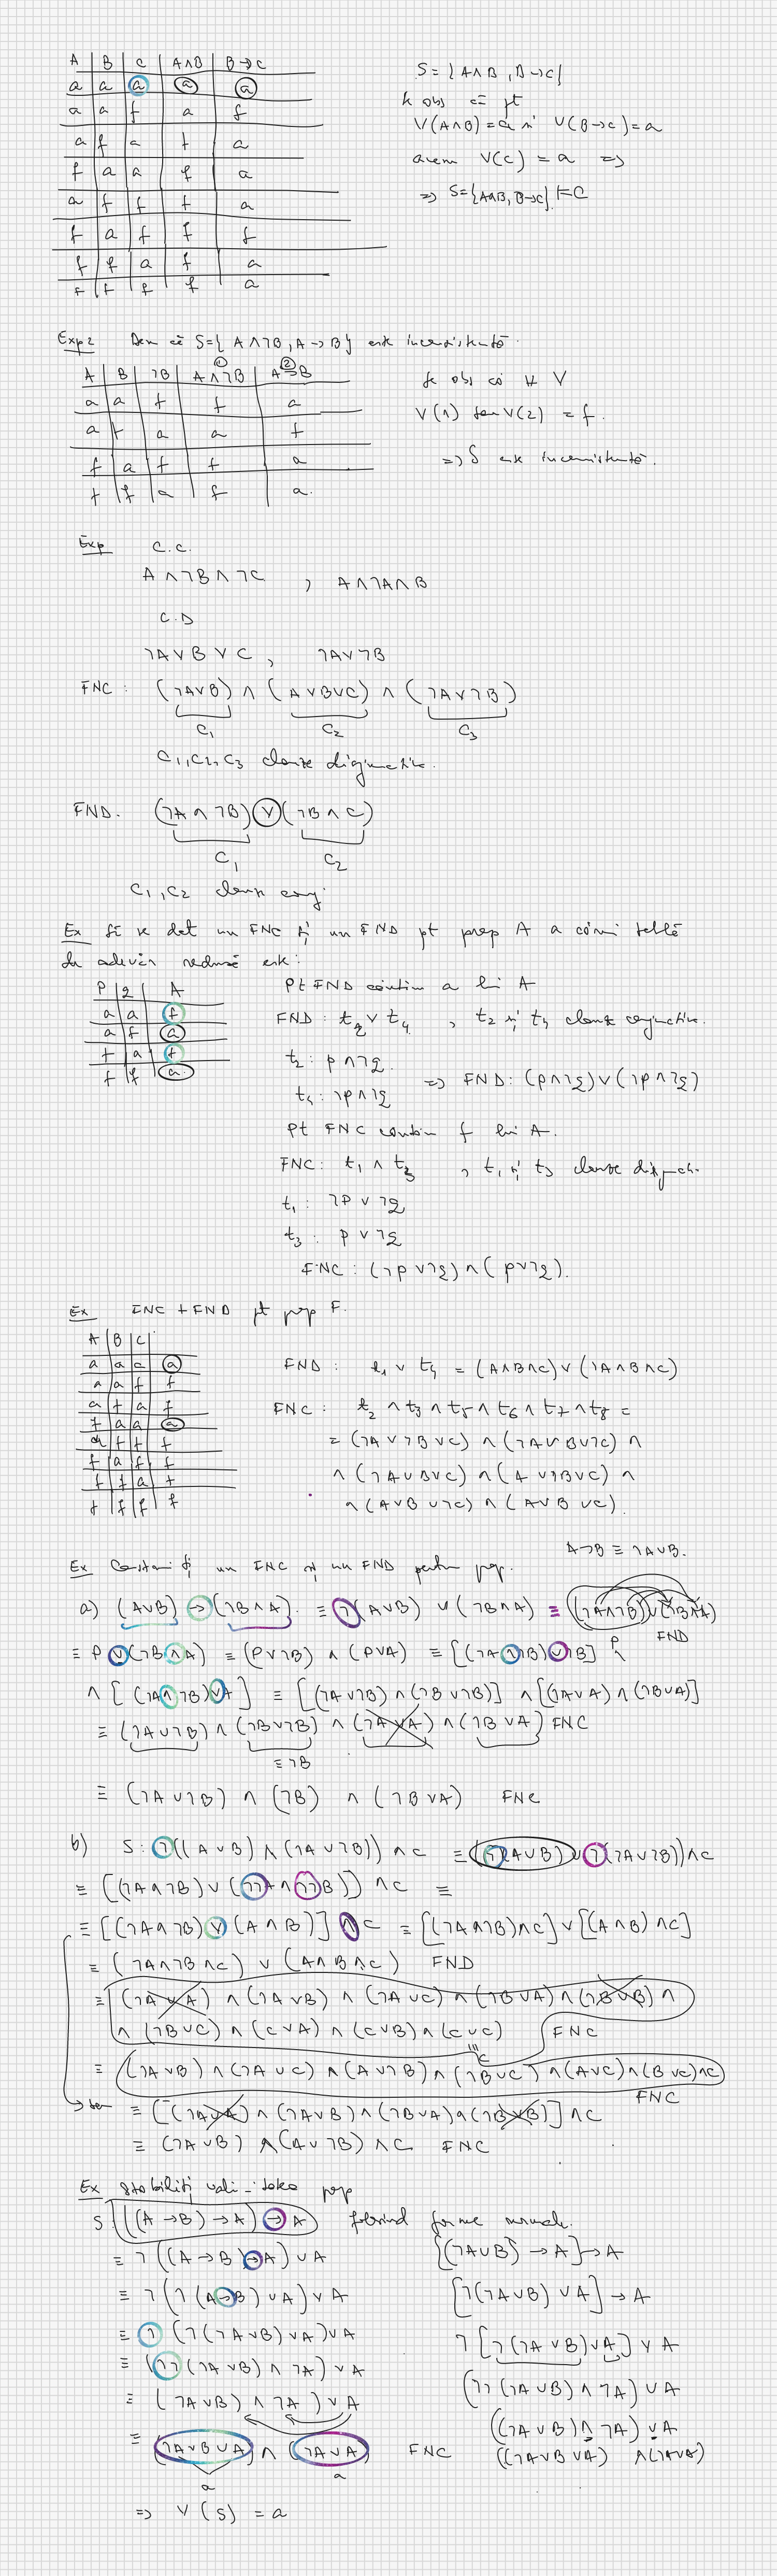 A | B | C | A∧B | B→C
a | a | a | a | a
a | a | f | a | f
a | f | a | f | a
f | a | a | f | a
a | f | f | f | a
f | a | f | f | f
f | f | a | f | a
f | f | f | f | a
S = {A∧B, B→C}
obs că pt
V(A∧B) = a și V(B→C) = a
avem V(C) = a ⇒
⇒ S={A∧B, B→C} ⊨ C
Exp2 Dem că S={ A∧¬B, A→B} este inconsistentă.
A | B | ¬B | A∧¬B ① | A→B ②
a | a | f | f | a
a | f | a | a | f
f | a | f | f | a
f | f | a | f | a.
Se obs că ∀ V
V(1) sau V(2) = f.
⇒ S este inconsistentă.
Exp C.C.
A∧¬B∧¬C , A∧¬A∧B
C.D
¬A∨B∨C, ¬A∨¬B
FNC: (¬A∨B) ∧ (A∨B∨C) ∧ (¬A∨¬B)
C₁ C₂ C₃
C₁,C₂,C₃ clauze disjunctive.
FND. (¬A∧¬B) ∨ (¬B∧C)
C₁ C₂
C₁,C₂ clauze conj.
Ex Să se det un FNC și un FND pt prop A a cărui tablă
de adevăr redusă este:
p | q | A
a | a | f
a | f | a
f | a | f
f | f | a.
Pt FND căutăm a lui A
FND: t₂ ∨ t₄ , t₂ și t₄ clauze conjunctive.
t₂: p∧¬q
t₄: ¬p∧¬q
⇒ FND: (p∧¬q)∨(¬p∧¬q)
Pt FNC căutăm f lui A.
FNC: t₁ ∧ t₃ , t₁ și t₃ clauze disjunct.
t₁: ¬p∨¬q
t₃: p∨¬q
FNC: (¬p∨¬q)∧(p∨¬q).
Ex FNC + FND pt prop F.
A | B | C |
a | a | a | a
a | a | f | f
a | f | a | f
f | a | a | a
a | f | f | f
f | a | f | f
f | f | a | f
f | f | f | f
FND: t₁ ∨ t₄ = (A∧B∧C)∨(¬A∧B∧C)
FNC: t₂ ∧ t₃ ∧ t₅ ∧ t₆ ∧ t₇ ∧ t₈ =
= (¬A∨¬B∨C) ∧ (¬A∨B∨¬C) ∧
∧ (¬A∨B∨C) ∧ (A∨¬B∨C) ∧
∧ (A∨B∨¬C) ∧ (A∨B∨C).
Ex Construiți un FNC și un FND pentru prop. A→B ≡ ¬A∨B.
a) (A∨B) → (¬B∧A). ≡ ¬(A∨B) ∨ (¬B∧A) ≡ (¬A∧¬B)∨(¬B∧A)
P FND
≡ P∨(¬B∧A) ≡ (P∨¬B) ∧ (P∨A) ≡ [(¬A∧¬B)∨¬B]
∧ [(¬A∧¬B)∨A] ≡ [(¬A∨¬B)∧(¬B∨¬B)] ∧ [(¬A∨A)∧(¬B∨A)]
≡ (¬A∨¬B) ∧ (¬B∨¬B) ∧ (¬A∨A) ∧ (¬B∨A) FNC
≡ ¬B
≡ (¬A∨¬B) ∧ (¬B) ∧ (¬B∨A) FNC
b) S: ¬((A∨B) ∧ (¬A∨¬B)) ∧ C ≡ (¬(A∨B)∨¬(¬A∨¬B))∧C
≡ [(¬A∧¬B)∨(¬¬A∧¬¬B)] ∧C ≡
≡ [(¬A∧¬B)∨(A∧B)] ∧ C ≡ [(¬A∧¬B)∧C]∨[(A∧B)∧C]
≡ (¬A∧¬B∧C) ∨ (A∧B∧C) FND
≡ (¬A∨A) ∧ (¬A∨B) ∧ (¬A∨C) ∧ (¬B∨A) ∧ (¬B∨B) ∧
∧ (¬B∨C) ∧ (C∨A) ∧ (C∨B) ∧ (C∨C) FNC
≡ C
≡ (¬A∨B) ∧ (¬A∨C) ∧ (A∨¬B) ∧ (¬B∨C) ∧ (A∨C)∧(B∨C)∧C
FNC
sau ≡ [(¬A∨A) ∧ (¬A∨B) ∧ (¬B∨A) ∧ (¬B∨B)] ∧C
≡ (¬A∨B) ∧ (A∨¬B) ∧ C FNC
Ex Stabiliți prop
S: ((A→B)→A) → A folosind forme normale.
≡ ¬((A→B)→A) ∨A
≡ ¬(¬(A→B)∨A)∨A
≡ ¬(¬(¬A∨B)∨A)∨A
≡ (¬¬(¬A∨B) ∧ ¬A)∨A
≡ (¬A∨B) ∧ ¬A) ∨A
≡ (¬A∨B∨A) ∧ (¬A∨A) FNC
a a
⇒ V(S) = a
[(¬A∨B)→A]→A
[¬(¬A∨B)∨A]→A
¬[¬(¬A∨B)∨A]∨A
(¬¬(¬A∨B)∧¬A)∨A
((¬A∨B)∧¬A)∨A
((¬A∨B∨A) ∧(¬A∨A)